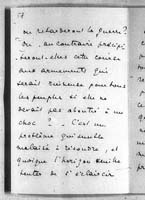 57
ou retarderont la guerre ?
Ou, au contraire précipi-
teront-elles cette course
aux armements qui
serait ruineuse pour tous
les peuples si elle ne
devait pas aboutir à un
choc ? . C'est un
problème qui semble
malaisé à résoudre, et
quoique l'horizon semble
tenter de s'éclaircir